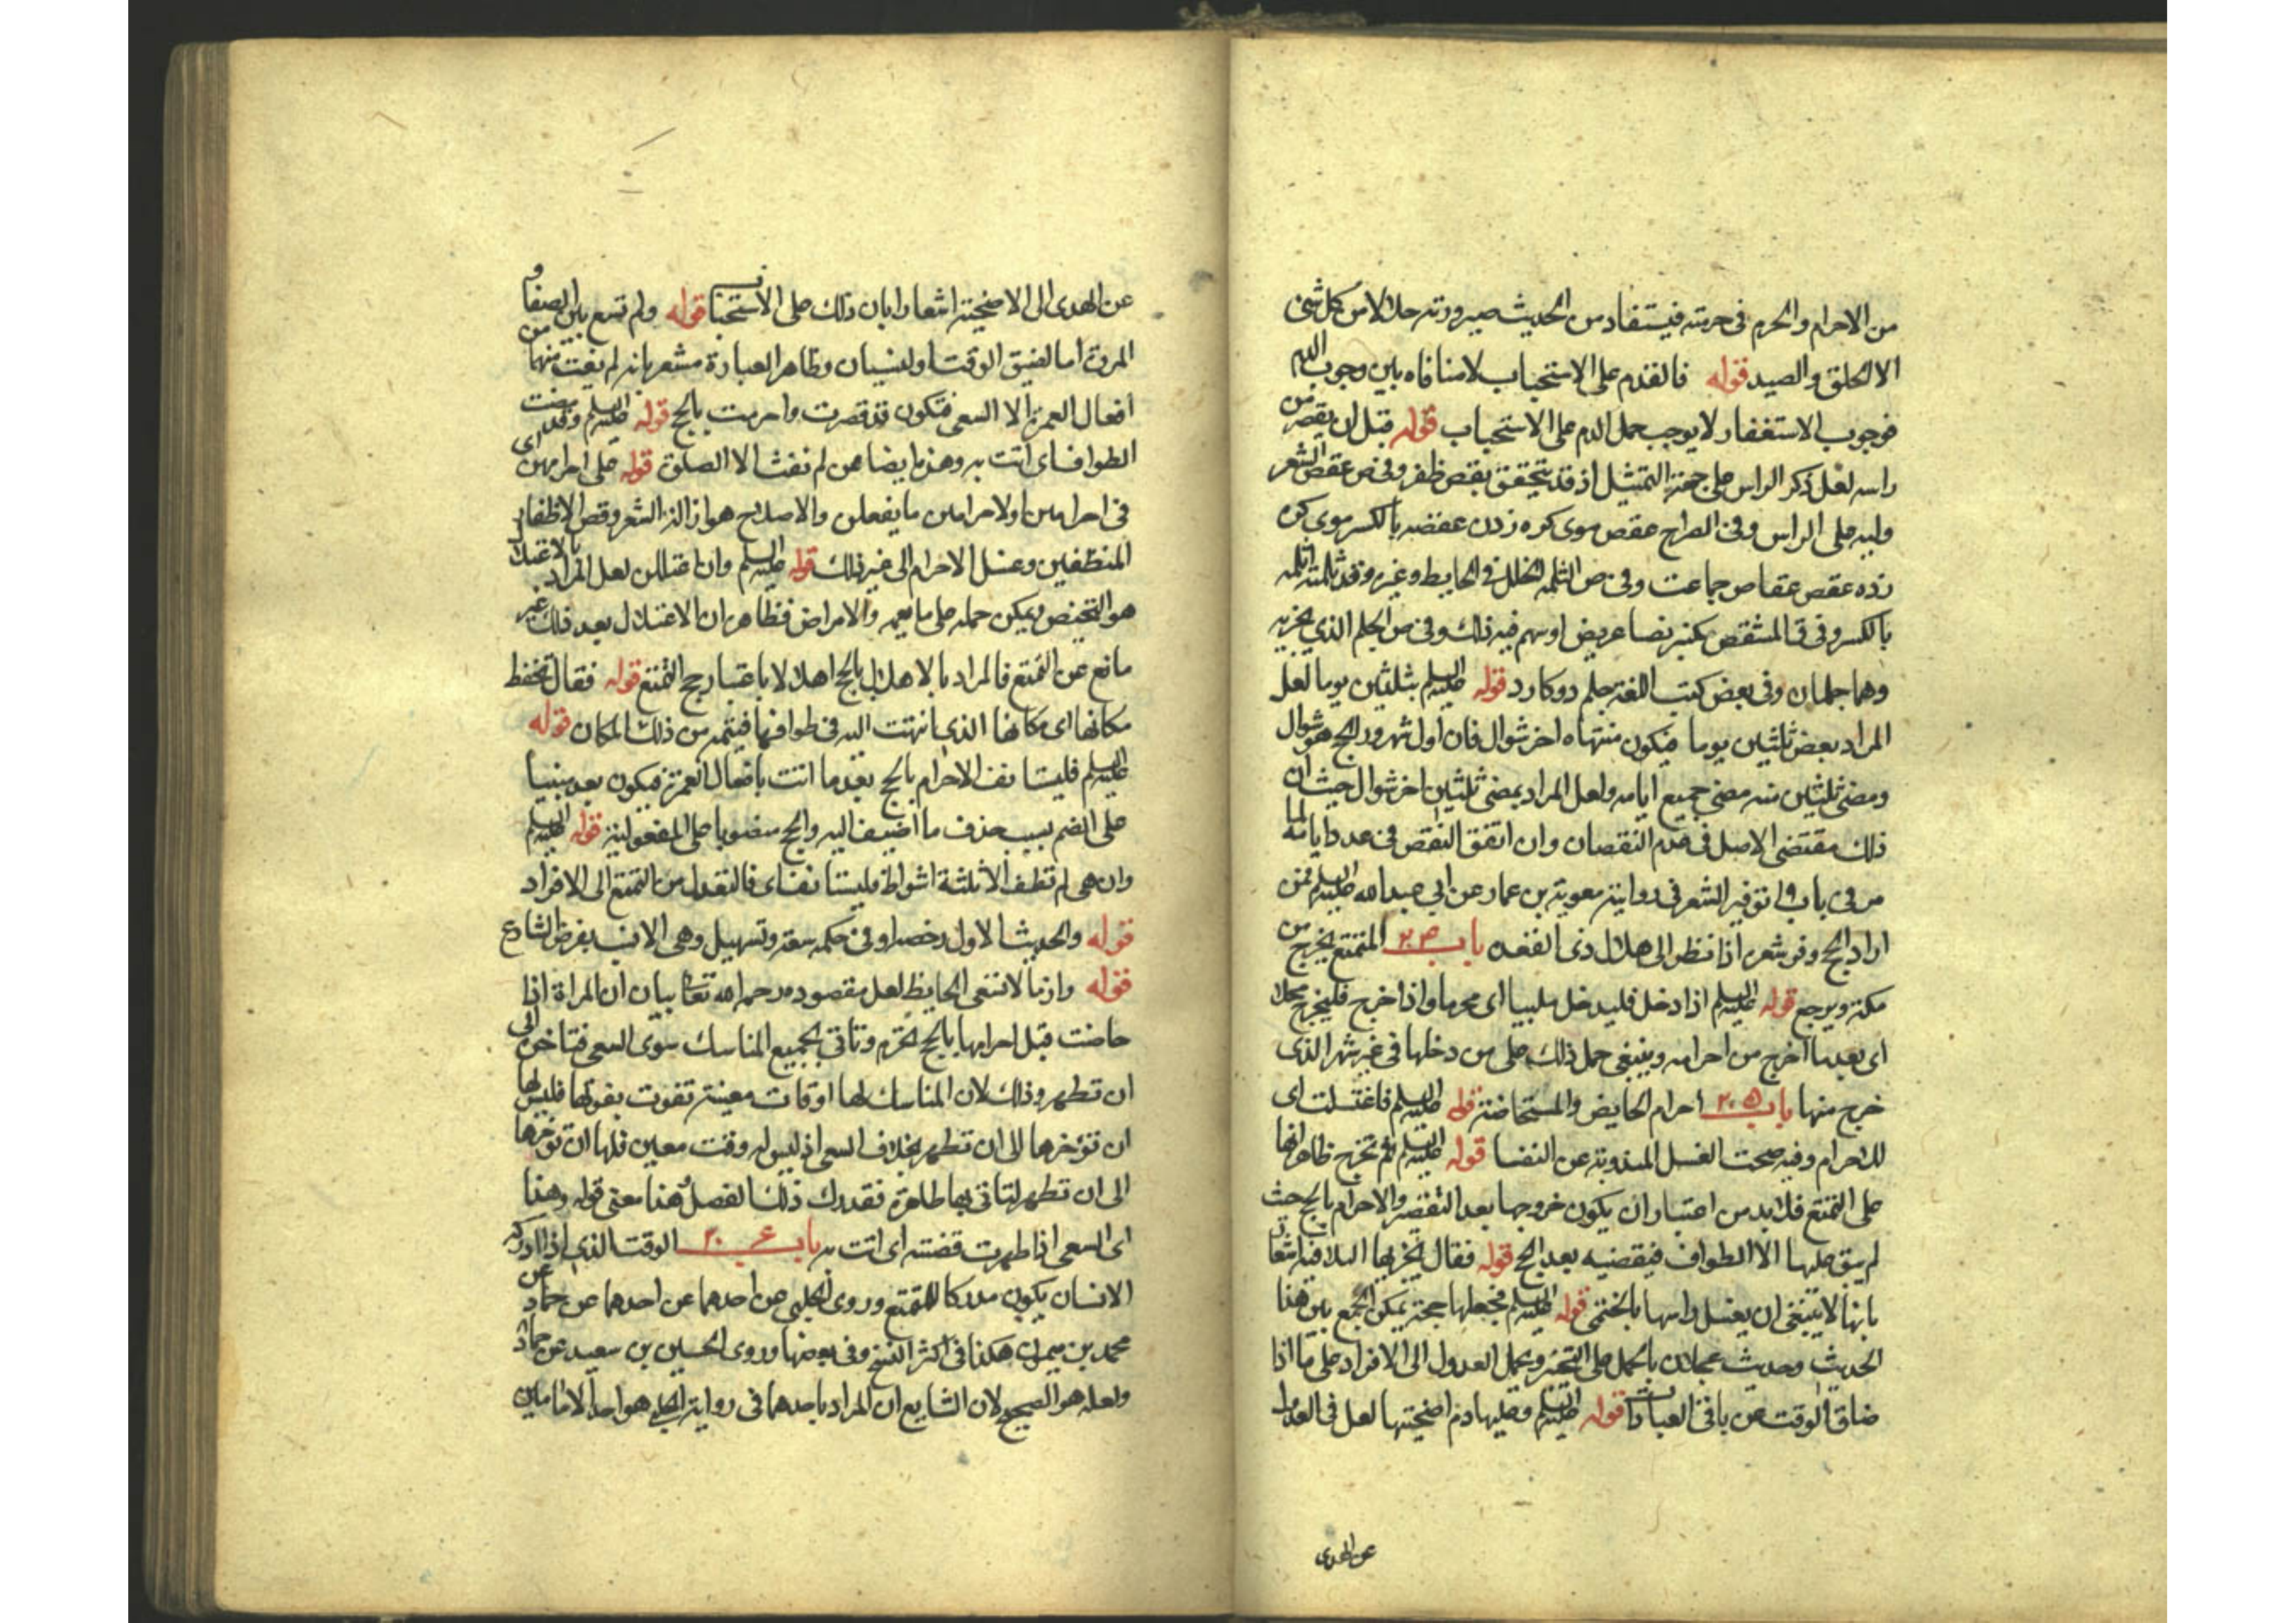 من الاحرام والحرم فى حرمته فيستفاد من الحديث صيرورته حلالا من كل شئ
الا الحلق والصيد قوله فالقدم على الاستحباب لا منافاه بين وجوب الدم
فوجوب الاستغفار لا يوجب حمل الدم على الاستحباب قوله قبل ان يقصر من
راسه لعل ذكر الراس على جهة التمثيل اذ قد يتحقق بقص ظفر وفى ص عقص الشعر
وليه على الراس وفى الصراح عقص موى كره زدن عقصه بالكسر موى كره
زده عقص عقاص جماعت وفى ص الثلمه الخلل فى الحايط وغيره وقد ثلمته اثلمه
بالكسر وفى ق المشقص كمنبر نصا عريض او سهم فيه ذلك وفى ص الجلم الذى يجز به
وهما جلمان وفى بعض كتب اللغة جلم دوكارد قوله عليه السلم بثلثين يوما لعل
المراد بعض ثلثين يوما فيكون منتهاه اخر شوال فان اول شهور الحج هو شوال
ومضى ثلثين منه مضى جميع ايامه ولعل المراد بمضى ثلثين اخر شوال حيث ان
ذلك مقتضى الاصل فى عدم النقصان وان اتفق النقص فى عدد ايامه لما
مر فى باب توفير الشعر فى رواية معوية بن عمار عن ابى عبدالله عليه السلم فمن
اراد الحج وفر شعره اذا نظر الى هلال ذى القعده باب ٢٠٣ المتمتع يخرج من
مكة ويرجع قوله عليه السلم اذا دخل فليدخل ملبيا اى محرما واذا خرج فليخرج محلا
اى بعد ما اخرج من احرامه وينبغى حمل ذلك على من دخلها فى غير شهر الذى
خرج منها باب ٢٠٥ احرام الحايض والمستحاضة قوله عليه السلم فاغتسلت اى
للاحرام وفيه صحت الغسل المندوبة عن النفسا قوله عليه السلم ثم تخرج ظاهر انها
على التمتع فلا بد من اعتبار ان يكون خروجها بعد التقصير والاحرام بالحج حيث
لم يبق عليها الا الطواف فيقضيه بعد الحج قوله فقال فيه اشعار
بانها لا ينبغى ان يغسل راسها بالخطمى قوله عليه السلم فجعلها حجة يمكن الجمع بين هذا
الحديث وحديث عجلان بالحمل على التخير وبحمل العدول الى الافراد على ما اذا
ضاق الوقت عن باقى العبادات قوله عليه السلم وعليها دم اضحيتها لعل فى العدول
عن الهدى
عن الهدى الى الاضحية اشعارا بان ذلك على الاستحباب قوله ولم تسع بين الصفا و
المروة اما لضيق الوقت او لنسيان وظاهر العبارة مشعر بانه لم يفت منها من
افعال العمرة الا السعى فتكون قد قصرت واحرمت بالحج قوله عليه السلم وقد مضت
الطواف اى اتت به وهذه ايضا من لم تفت الا الصلوة قوله على احرامهن اى
فى احرامهن او لاحرامهن ما يفعلن والاصلاح هو ازالة الشعر وقص الاظفار
المنظفين وغسل الاحرام الى غير ذلك قوله عليه السلم وان اعتللن لعل المراد بالاعتلال
هو التحيض ويمكن حمله على ما يعمه والامراض فظاهر ان الاعتلال بعد ذلك غير
مانع عن التمتع فالمراد بالاهلال بالحج اهلالا باعتبار حج التمتع قوله فقال تحفظ
مكانها اى مكانها الذى انتهت اليه فى طوافها فيتمه من ذلك المكان قوله
عليه السلم فليستانف الاحرام بالحج بعد ما اتت بافعال العمرة فيكون بعد مبنيا
على الضم بسبب حذف ما اضيف اليه والحج منصوبا على المفعولية قوله عليه السلم
وان هى لم تطف الا ثلثة اشواط فليستانف اى فالتعدل من التمتع الى الافراد
قوله والحديث الاول رخصه او فى حكمه سعة وتسهيل وهى الانسب بغرض الشارع
قوله وانما لا تسعى الحايظ لعل مقصوده رحمه الله تعالى بيان ان المراة اذا
حاضت قبل احرامها بالحج تحرم وتاتى بجميع المناسك سوى السعى فتاخره الى
ان تطهر وذلك لان المناسك لها اوقات معينة تفوت بفوتها فليس لها
ان تؤخرها الى ان تطهر بخلاف السعى اذ ليس له وقت معين فلها ان تؤخرها
الى ان تطهر لتاتى بها طاهرة فتدرك ذلك الفصل هذا معنى قوله وهذا
اى السعى اذا طهرت قضته اى اتت به باب ٢٠٦ الوقت الذى اذا ادركه
الانسان يكون مدركا للتمتع وروى الحلبى عن احدهما عن احدهما عن حماد عن
محمد بن ميمون هكذا فى اكثر النسخ وفى بعضها وروى الحسين بن سعيد عن حماد
ولعله هو الصحيح لان الشايع ان المراد باحدهما فى رواية الحلبى هو احد الامامين